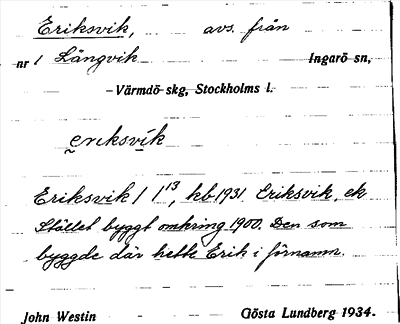 Eriksvik, avs. från
nr 1 Långvik Ingarö sn,
Värmdö skg, Stockholms l.
eriksvik
Eriksvik 1 1¹³, kb 1931 Eriksvik, ek
Stället byggt omkring 1900. Den som
byggde där hette Erik i förnamn.
John Westin Gösta Lundberg 1934.